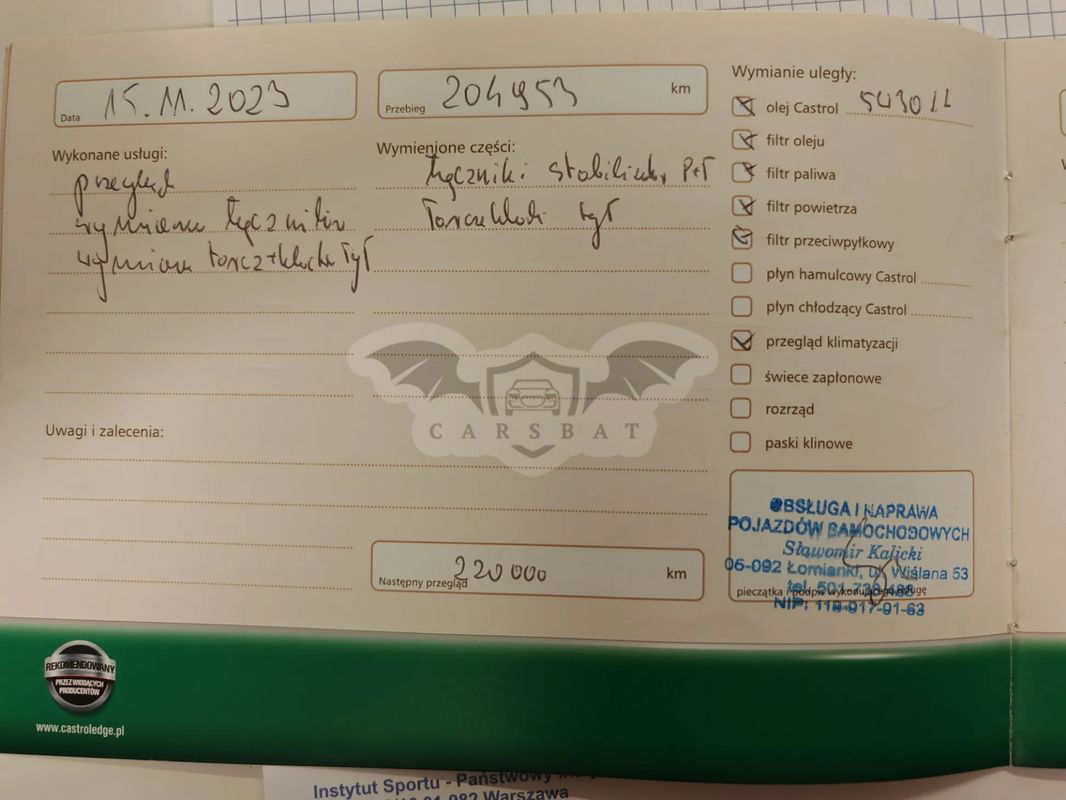 Data 15.11.2023
Przebieg 204953 km
Wykonane usługi:
przegląd
wymiana łączników
wymiana tarcz+klocki tył
Wymienione części:
łączniki stabilizat. P+T
Tarcze klocki tył
Wymianie uległy:
olej Castrol 5W30LL
filtr oleju
filtr paliwa
filtr powietrza
filtr przeciwpyłkowy
płyn hamulcowy Castrol
płyn chłodzący Castrol
przegląd klimatyzacji
świece zapłonowe
rozrząd
paski klinowe
CARSBAT
Uwagi i zalecenia:
Następny przegląd 220000 km
OBSŁUGA I NAPRAWA
POJAZDÓW SAMOCHODOWYCH
Sławomir Kalicki
05-092 Łomianki, ul. Wiślana 53
tel. 501
pieczątka i podpis wykonującego usługę
NIP: 118-017-91-63
REKOMENDOWANY
PRZEZ WIODĄCYCH
PRODUCENTÓW
www.castroledge.pl
Instytut Sportu - Państwowy
Warszawa